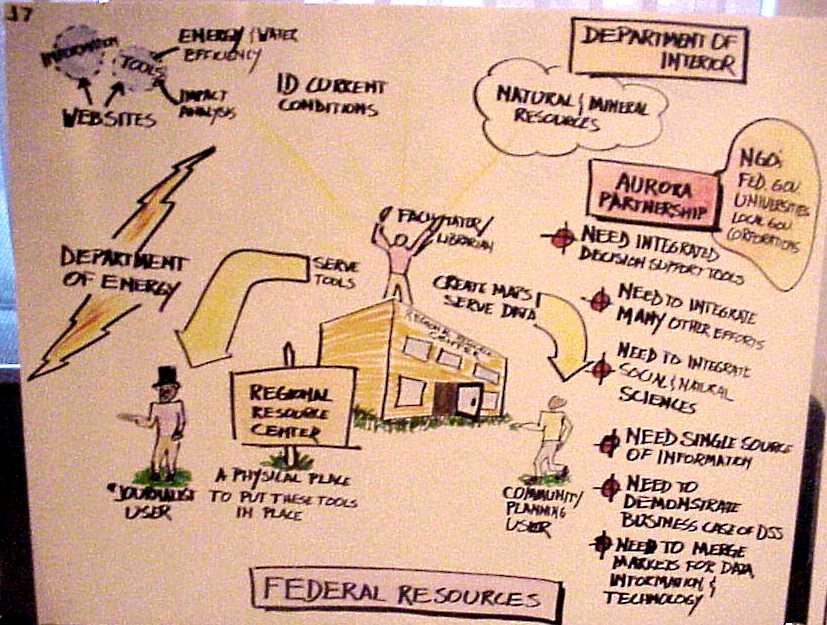 17
INFORMATION
TOOLS
ENERGY & WATER
EFFICIENCY
IMPACT
ANALYSIS
WEBSITES
ID CURRENT
CONDITIONS
DEPARTMENT OF
INTERIOR
NATURAL & MINERAL
RESOURCES
AURORA
PARTNERSHIP
NGOs
FED. GOV.
UNIVERSITIES
LOCAL GOV
CORPORATIONS
DEPARTMENT
OF ENERGY
SERVE
TOOLS
FACILITATER/
LIBRARIAN
CREATE MAPS
SERVE DATA
REGIONAL RESOURCE
CENTER
REGIONAL
RESOURCE
CENTER
A PHYSICAL PLACE
TO PUT THESE TOOLS
IN PLACE
JOURNALIST
USER
COMMUNITY
PLANNING
USER
NEED INTEGRATED
DECISION SUPPORT TOOLS
NEED TO INTEGRATE
MANY OTHER EFFORTS
NEED TO INTEGRATE
SOCIAL & NATURAL
SCIENCES
NEED SINGLE SOURCE
OF INFORMATION
NEED TO
DEMONSTRATE
BUSINESS CASE OF DSS
NEED TO MERGE
MARKETS FOR DATA,
INFORMATION, &
TECHNOLOGY
FEDERAL RESOURCES